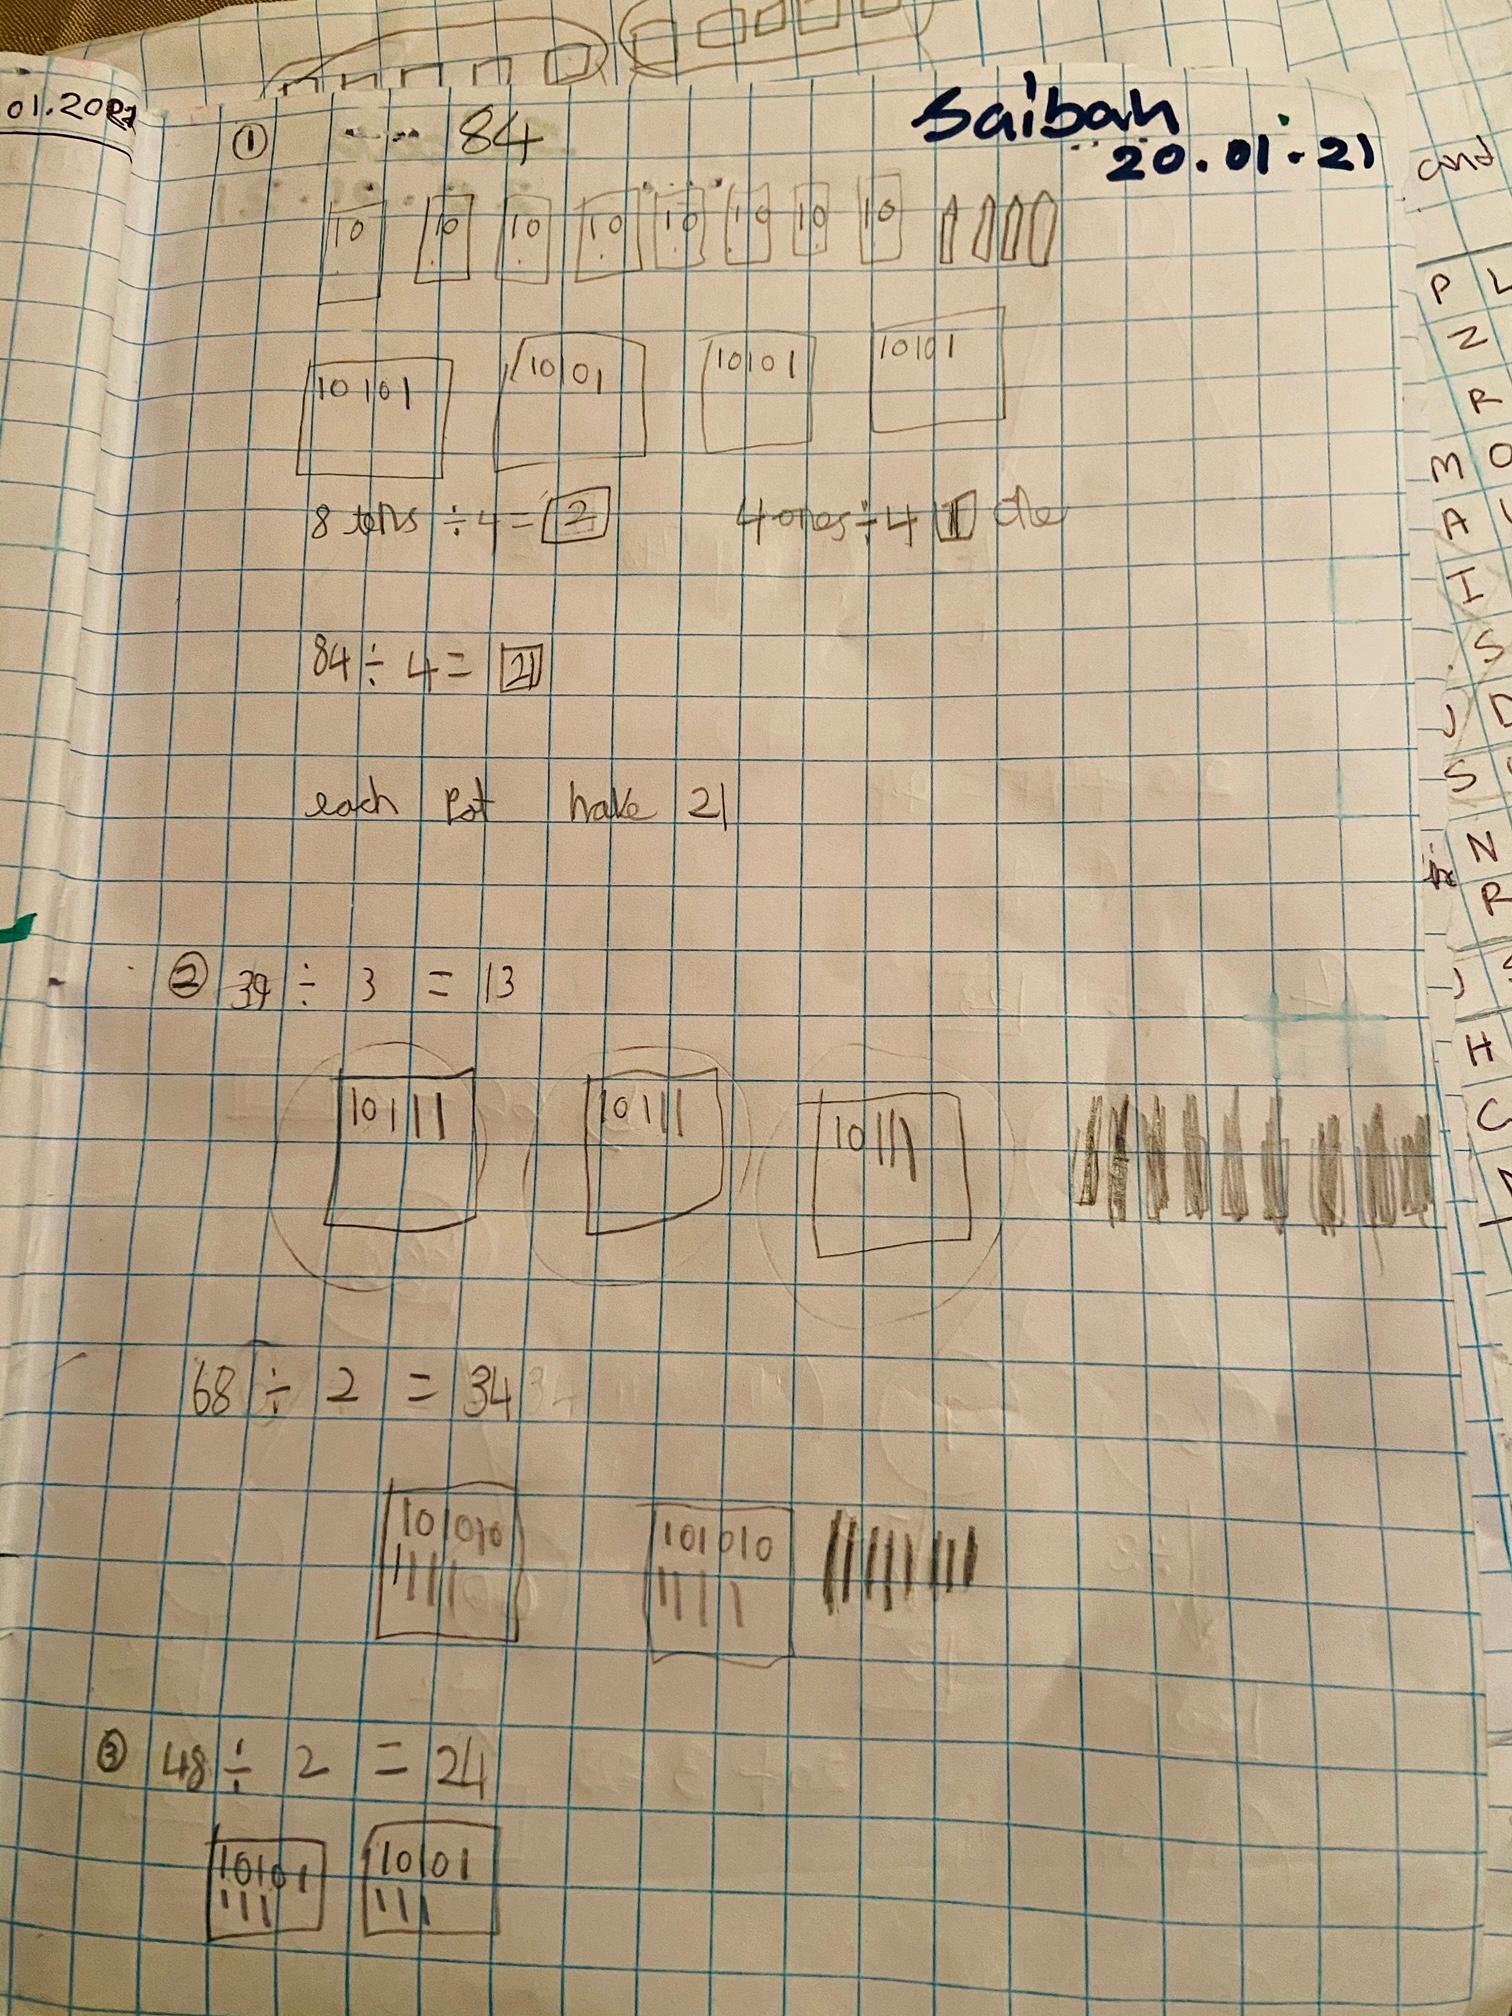 01.2021
① 84
Saibah
20.01.21
10 10 10 10 10 10 10 10
10 10 1 10 10 1 10 10 1 10 10 1
8 tens ÷ 4 = 2 4 ones ÷ 4 1
84 ÷ 4 = 21
each Pot have 21
② 39 ÷ 3 = 13
10 1 1 1 10 1 1 1 10 1 1 1
68 ÷ 2 = 34
10 10 10 10 10 10
1 1 1 1 1 1 1 1
③ 48 ÷ 2 = 24
10 10 1 10 10 1
1 1 1 1 1 1
and
P L
Z
R
M O
A
I
S
J D
S
N
R
J
H
C